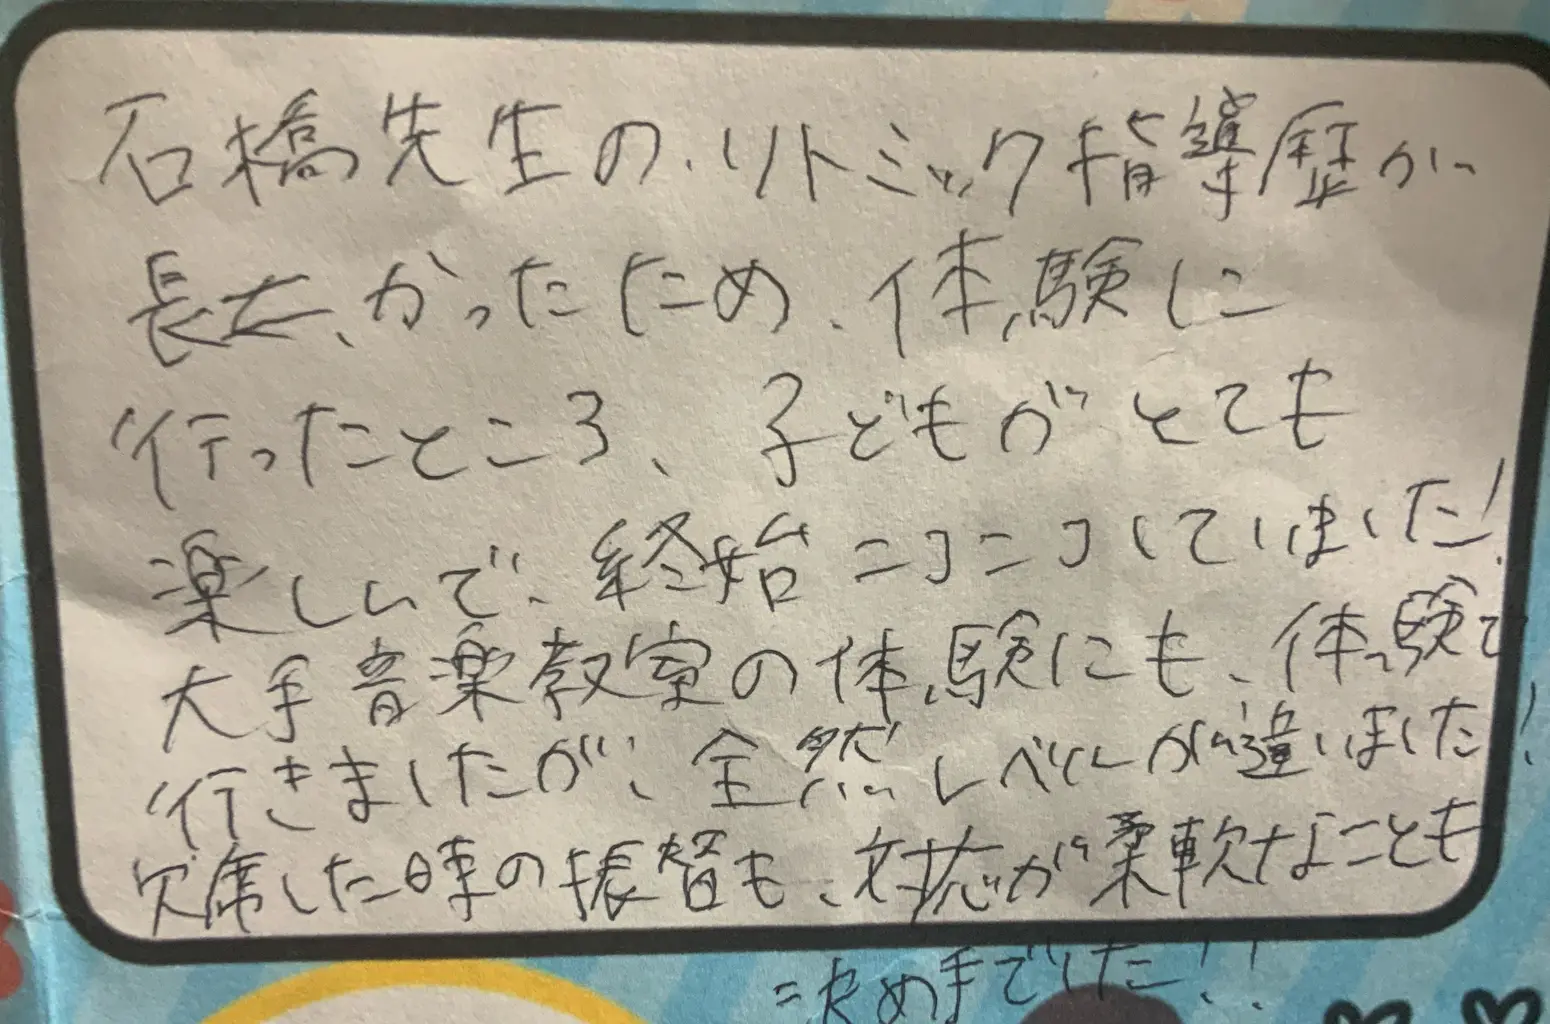 石橋先生の、リトミック指導歴が
長かったため、体験に
行ったところ、子どもがとても
楽しんで、終始ニコニコしていました!
大手音楽教室の体験にも、体験で
行きましたが、全然レベルが違いました!
欠席した時の振替も、対応が柔軟なことも
決め手でした!!